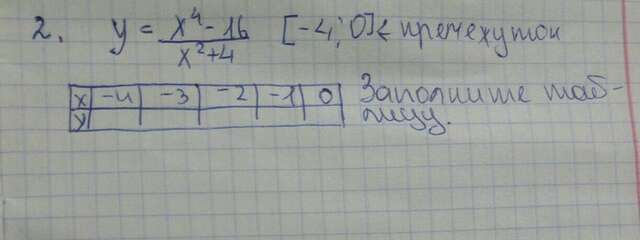 2. y = x⁴-16 / x²+4 [-4; 0] ← промежуток
x -4 -3 -2 -1 0 Заполните таб-
y лицу.